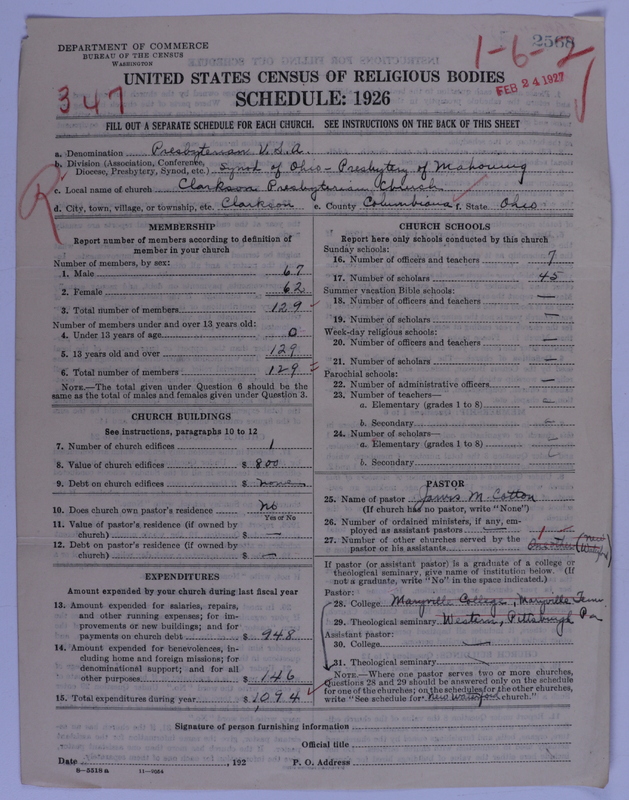 DEPARTMENT OF COMMERCE
BUREAU OF THE CENSUS
WASHINGTON
2568
1-6-2
FEB 24 1927
347
UNITED STATES CENSUS OF RELIGIOUS BODIES
SCHEDULE: 1926
FILL OUT A SEPARATE SCHEDULE FOR EACH CHURCH. SEE INSTRUCTIONS ON THE BACK OF THIS SHEET
R
a. Denomination Presbyterian U.S.A.
b. Division (Association, Conference, Diocese, Presbytery, Synod, etc.) Synod of Ohio - Presbytery of Mahoning
c. Local name of church Clarkson Presbyterian Church
d. City, town, village, or township, etc. Clarkson e. County Columbiana f. State Ohio
MEMBERSHIP
Report number of members according to definition of
member in your church
Number of members, by sex:
1. Male 67
2. Female 62
3. Total number of members 129
Number of members under and over 13 years old:
4. Under 13 years of age 0
5. 13 years old and over 129
6. Total number of members 129
NOTE.—The total given under Question 6 should be the
same as the total of males and females given under Question 3.
CHURCH BUILDINGS
See instructions, paragraphs 10 to 12
7. Number of church edifices 1
8. Value of church edifices $ 800
9. Debt on church edifices $ none
10. Does church own pastor's residence no
Yes or No
11. Value of pastor's residence (if owned by
church) $ —
12. Debt on pastor's residence (if owned by
church) $ —
EXPENDITURES
Amount expended by your church during last fiscal year
13. Amount expended for salaries, repairs,
and other running expenses; for im-
provements or new buildings; and for
payments on church debt $ 948
14. Amount expended for benevolences, in-
cluding home and foreign missions; for
denominational support; and for all
other purposes $ 146
15. Total expenditures during year $ 1094
CHURCH SCHOOLS
Report here only schools conducted by this church
Sunday schools:
16. Number of officers and teachers 7
17. Number of scholars 45
Summer vacation Bible schools:
18. Number of officers and teachers —
19. Number of scholars —
Week-day religious schools:
20. Number of officers and teachers —
21. Number of scholars —
Parochial schools:
22. Number of administrative officers —
23. Number of teachers—
a. Elementary (grades 1 to 8)
b. Secondary
24. Number of scholars—
a. Elementary (grades 1 to 8)
b. Secondary
PASTOR
25. Name of pastor James M. Cotton
(If church has no pastor, write "None")
26. Number of ordained ministers, if any, em-
ployed as assistant pastors —
27. Number of other churches served by the
pastor or his assistants 1
If pastor (or assistant pastor) is a graduate of a college or
theological seminary, give name of institution below. (If
not a graduate, write "No" in the space indicated.)
Pastor:
28. College Maryville College, Maryville Tenn
29. Theological seminary Western, Pittsburgh Pa
Assistant pastor:
30. College
31. Theological seminary
NOTE.—Where one pastor serves two or more churches,
Questions 28 and 29 should be answered only on the schedule
for one of the churches; on the schedules for the other churches,
write "See schedule for New Waterford church."
Signature of person furnishing information
Official title
Date , 192 P. O. Address
8-5518a 11-9064